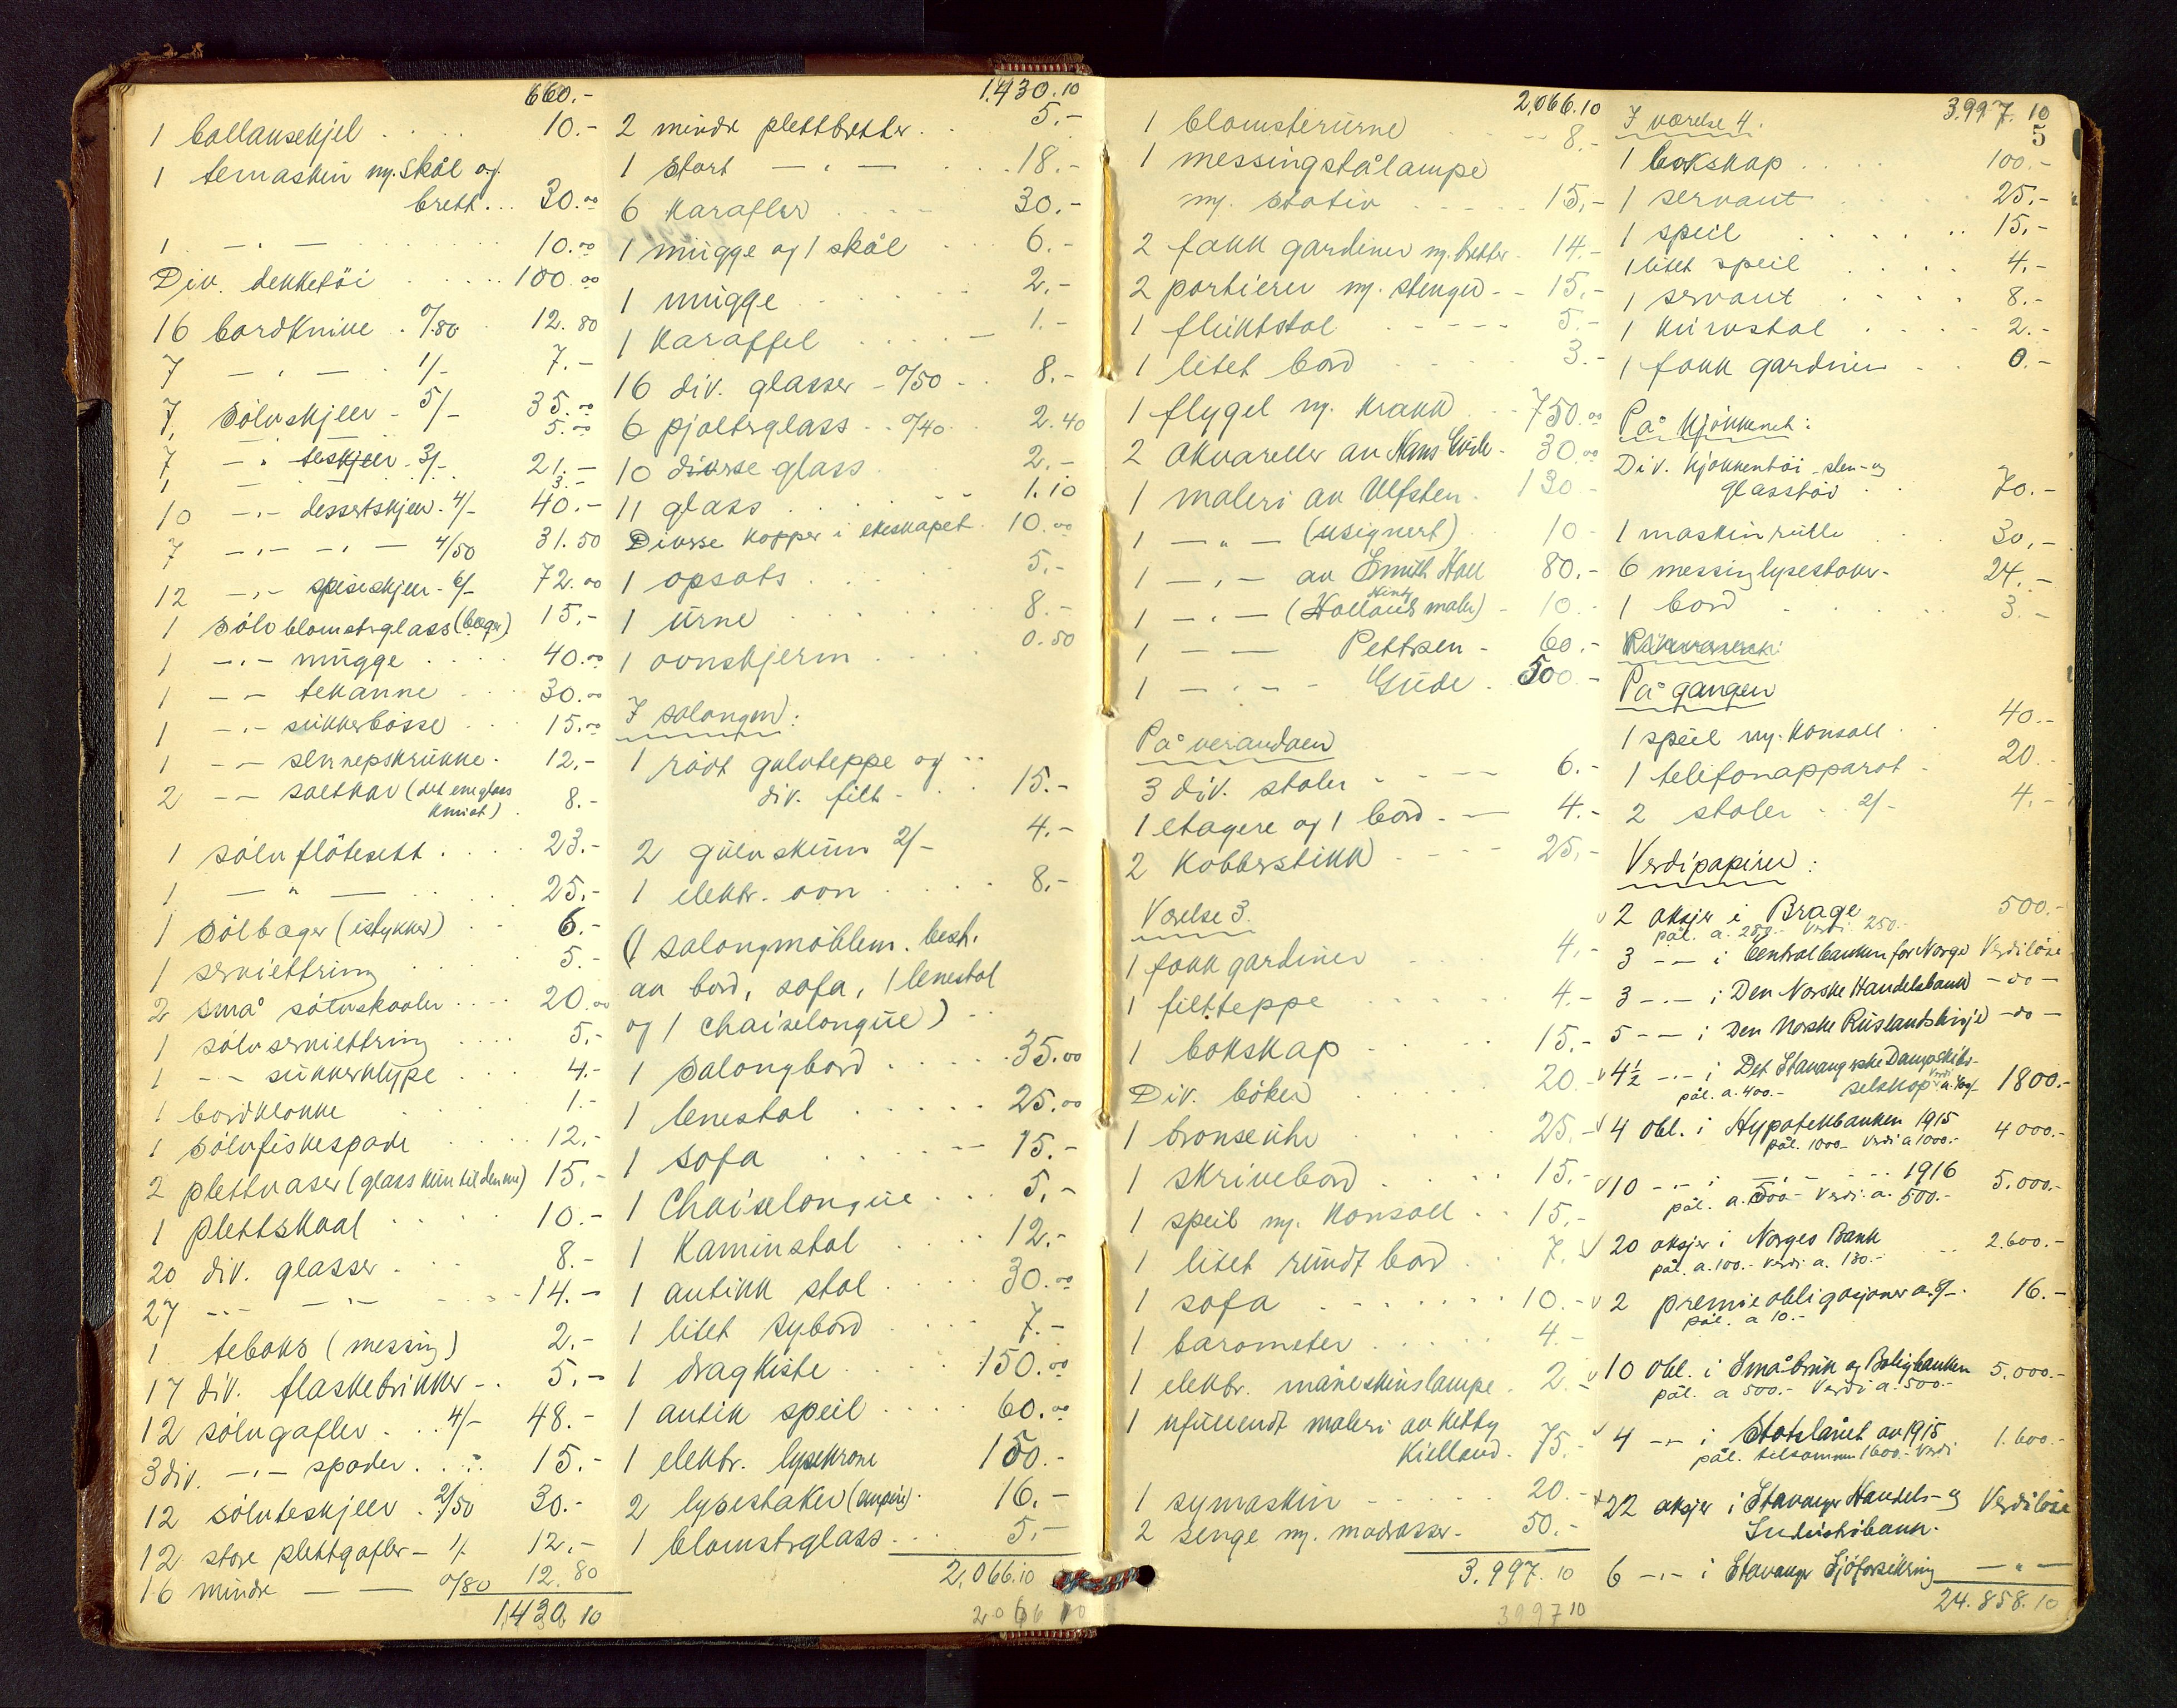 660.-
1 bollansekjel . . . . 10.-
1 temaskin m. skål og
brett... 30.00
1 - " - . . . . 10.00
Div. dekketöi . . . . 100.00
16 bordknive . 0/80 . 12.80
7 - " - . 1/- 7.-
7 sölvskjeer - 5/- 35.00
5.00
7 - " teskjeer - 3/- 21.-
1 3.-
10 -"- dessertskjeer - 4/- 40.-
7 -"- -"- 4/50 31.50
12 -"- spiseskjeer - 6/- 72.00
1 sölvblomstrglass (bæger) 15.-
1 -"- mugge . . . . 40.00
1 -"- tekanne . . . 30.00
1 -"- sukkerbösse . . . 15.00
1 -"- sennepskrukke . 12.-
2 -"- saltkar (det ene glass
knust) . 8.-
1 sölvflötesett . . . . 23.-
1 - " - . . . 25.-
1 sölbæger (istykker) . . 6.-
1 serviettring . . . . 5.-
2 små sölvskaaler . . . . 20.00
1 sölvserviettring . . . . 5.-
1 -"- sukkerklype . . . 4.-
1 bordklokke . . . . 1.-
1 sölvfiskespade . . . . 12.-
2 plettvaser (glass kun til den ene) 15.-
1 plettskaal . . . . 10.-
20 div. glasser . . . 8.-
27 -"- -"- . . . 14.-
1 teboks (messing) 2.-
17 div. flaskebrikker - . 5.-
12 sölvgafler . . . 4/- 48.-
3 div. -"- spader . . . 15.-
12 sölvteskjeer . 2/50 30.-
12 store plettgafler - 1/- 12.-
16 mindre -"- 0/80 12.80
1,430.10
1.430.10
2 mindre plettbretter . . 5.-
1 stort - " - . . . 18.-
6 karafler . . . . 30.-
1 mugge og 1 skål . . 6.-
1 mugge . . . . 2.-
1 karaffel . . . . 1.-
16 div. glasser - 0/50 - . . 8.-
6 pjolterglass - . 0/40 . . 2.40
10 diverse glass . . 2.-
11 glass . . . . 1.10
Diverse kopper i ekeskapet . 10.00
1 opsats . . . . 5.-
1 urne . . . . 8.-
1 ovnskjerm . . . . 0.50
I salongen:
1 rödt gulvteppe og
div. filt - . . . 15.-
2 gulvskinn 2/- 4.-
1 elektr. ovn . . . . 8.-
(1 salongmöblem. best.
av bord, sofa, 1 lenestol
og 1 chaiselongue)
1 salongbord . . . . 35.00
1 lenestol . . . . 25.00
1 sofa . . . . 15.-
1 Chaiselongue . . . 5.-
1 Kaminstol . . . . 12.-
1 antikk stol . . . . 30.00
1 litet sybord . . . . 7.-
1 dragkiste . . . . 150.00
1 antik speil . . . . 60.00
1 elektr. lysekrone 150.-
2 lysestaker (empire) . 16.-
1 blomstrglass . . . 5.-
2,066.10
2066 10
2,066.10
1 blomsterurne - - - 8.-
1 messingstålampe
m. stativ - - - - 15.-
2 fakk gardiner m. bretter - 14.-
2 portierer m. stenger - - 15.-
1 fluktstol - - - - 5.-
1 litet bord - - - 3.-
1 flygel m. krakk - - 750.00
2 akvareller av Hans Gude - 30.00
1 maleri av Ulfsten . 130.-
1 - " - (usignert) . 10.-
1 - " - av Smith Hald 80.-
1 - " - (Hollands maler) - 10.-
1 - - Pettersen - 60.-
1 - " - - Gude . 500.-
På verandaen
3 div. stoler - - - - 6.-
1 etagere og 1 bord - - 4.-
2 kobberstikk - - - - 25.-
Værelse 3.
1 fakk gardiner - - - 4.-
1 filtteppe - - - - 4.-
1 bokskap - - - - 15.-
Div. böker . . . . 20.-
1 bronseuhr . . . . 25.-
1 skrivebord . . . . 15.-
1 speil m. konsoll . . 15.-
1 litet rundt bord . . 7.-
1 sofa . - - - - - 10.-
1 barometer . . . . 4.-
1 elektr. måneskinslampe . 2.-
1 ufullendt maleri av Kitty
Kielland . 75.-
1 symaskin - - - - 20.-
2 senge m. madrasser - 50.-
3.997.10
3997 10
3.997.10
5
I værelse 4.
1 bokskap . . . . 100.-
1 servant . . . . 25.-
1 speil . . . . 15.-
1 litet speil . . . . 4.-
1 servant . . . . 8.-
1 kurvstol . . . . 2.-
1 fakk gardiner . . 0.-
På kjökkenet:
Div. kjökkentöi - sten- og
glasstöi . . 70.-
1 maskinrulle . . . 30.-
6 messinglysestaker - 24.-
1 bord . . . . 3.-
På gangen
1 speil m. konsoll . . 40.-
1 telefonapparat - 20.-
2 stoler . . 2/- 4.-
Verdipapirer:
v 2 aksjer i Brage 500.-
pål. a. 250.- Verdi 250.-
3 -"- i Centralbanken for Norge Verdilöse
3 -"- i Den Norske Handelsbank -do-
5 -"- i Den Norske Ruslandslinje -do-
v 4½ -"- i Det Stavangerske Dampskibs-
selskap Verdi a. 400/- 1800.-
pål. a. 400.-
v 4 obl. i Hypotekbanken 1915 4 000.-
pål. 1000.- Verdi a 1000.-
v 10 -"- i -"- 1916 5.000.-
pål. a. 500.- Verdi. a. 500.-
v 20 aksjer i Norges Bank . . 2.600.-
pål. a. 100.- Verdi a. 130.-
v 2 premieobligasjoner a. 8/- . 16.-
pål. a 10.-
v 10 obl. i Småbruk og Boligbanken 5.000.-
pål. a 500.- Verdi a. 500.-
v 4 -"- i Statslånet av 1915 1.600.-
pål. tilsammen 1600.- Verdi
+ 22 aksjer i Stavanger Handels- og Verdilöse
Industribank.
6 -"- i Stavanger Sjöforsikring - " -
24.858.10